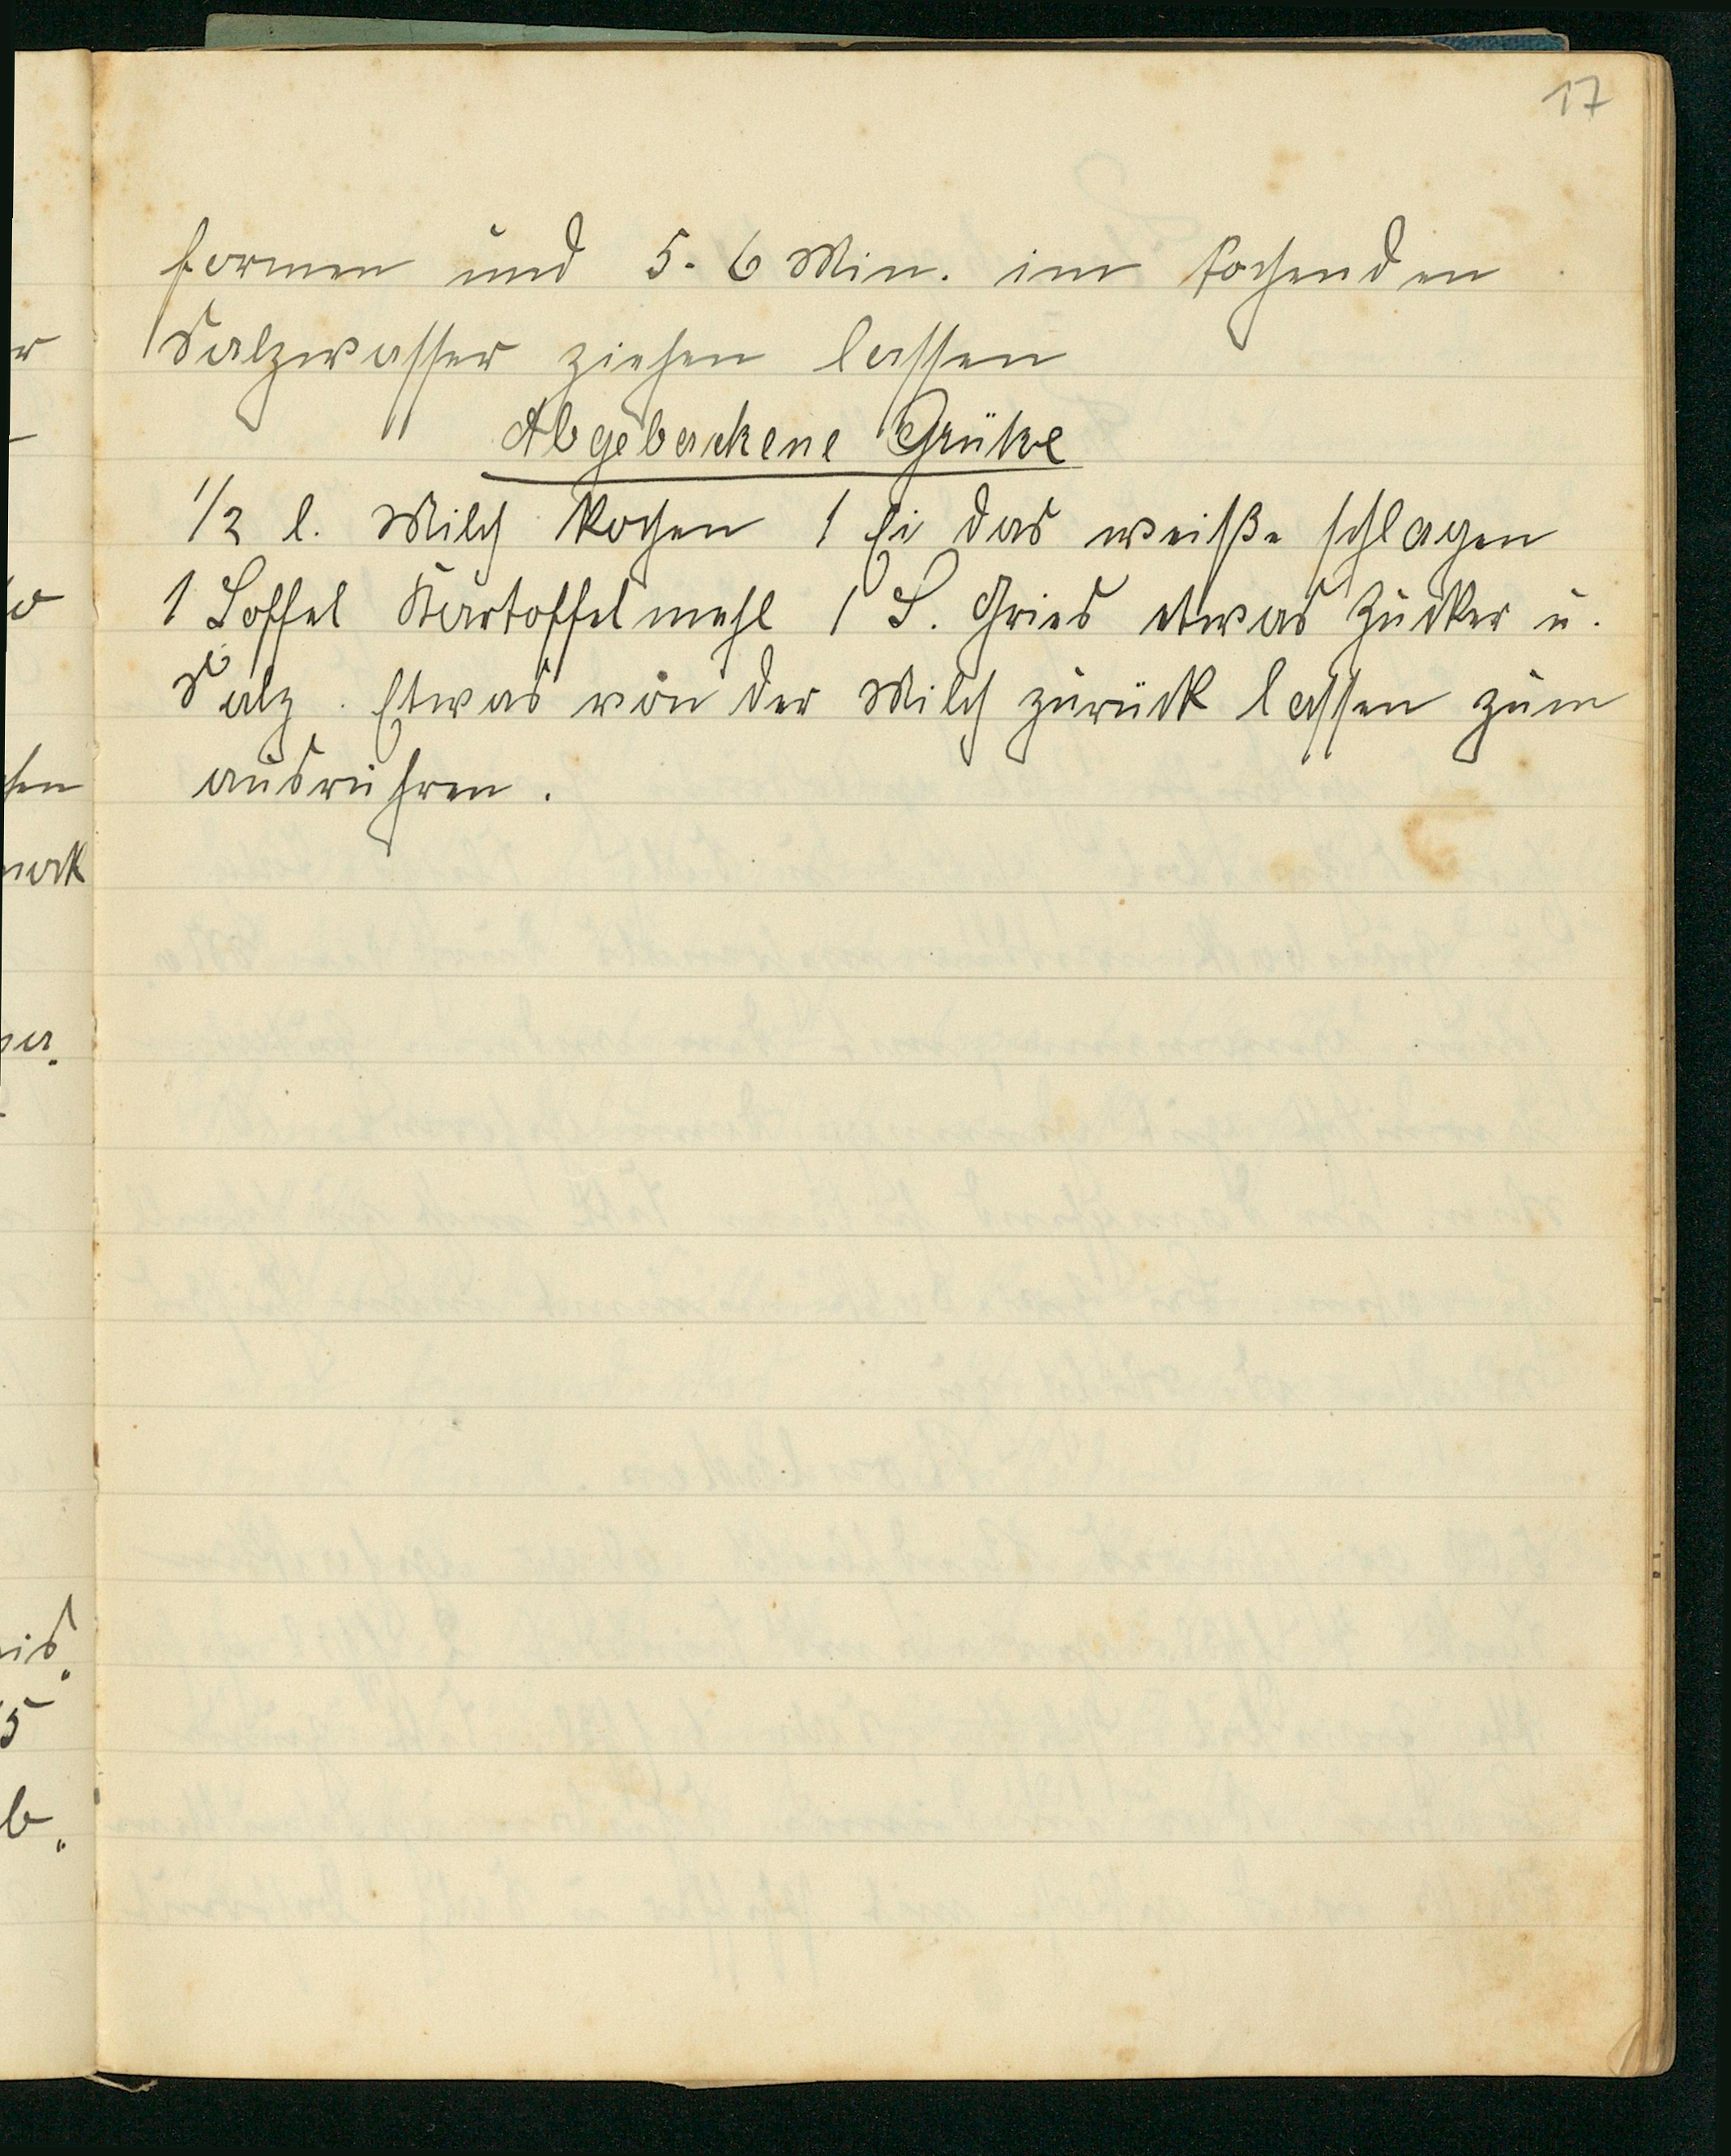 17
formen und 5-6 Min. im kochenden
Salzwasser ziehen lassen
Abgebackene Grütze
1/2 l. Milch kochen 1 Ei das weiße schlagen
1 Loffel Kartoffelmehl 1 L. Gries etwas Zucker u.
Salz. Etwas von der Milch zurück lassen zum
ausrühren.